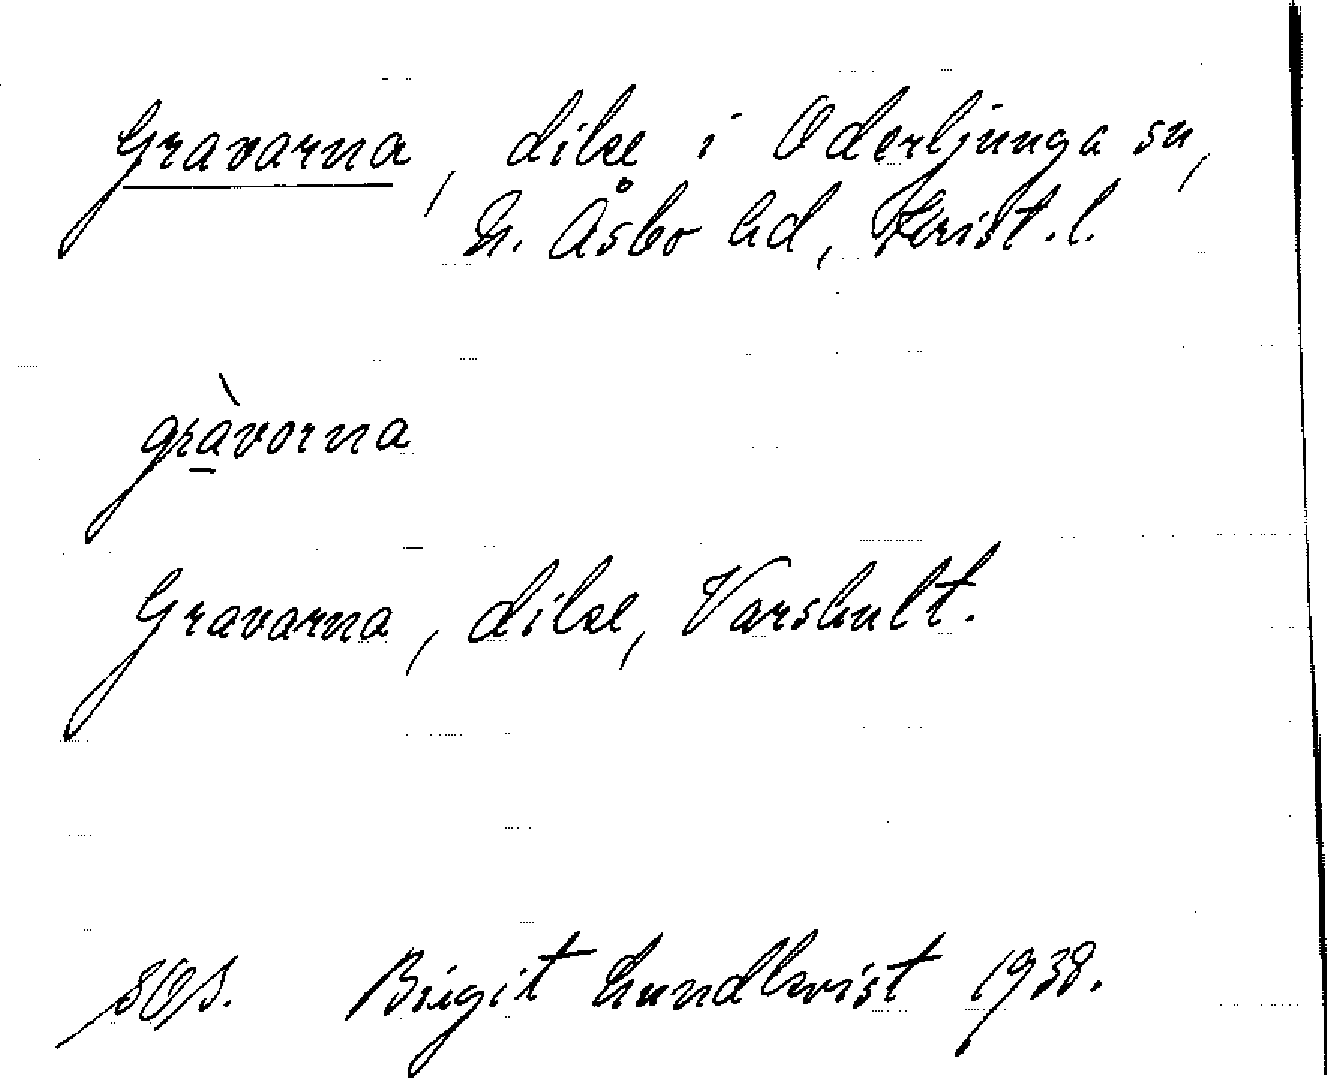 Gravarna, dike i Oderljunga sn,
N. Åsbo hd, Krist. l.
gràvorna
Gravarna, dike, Varshult.
Birgit Lundkvist 1938.